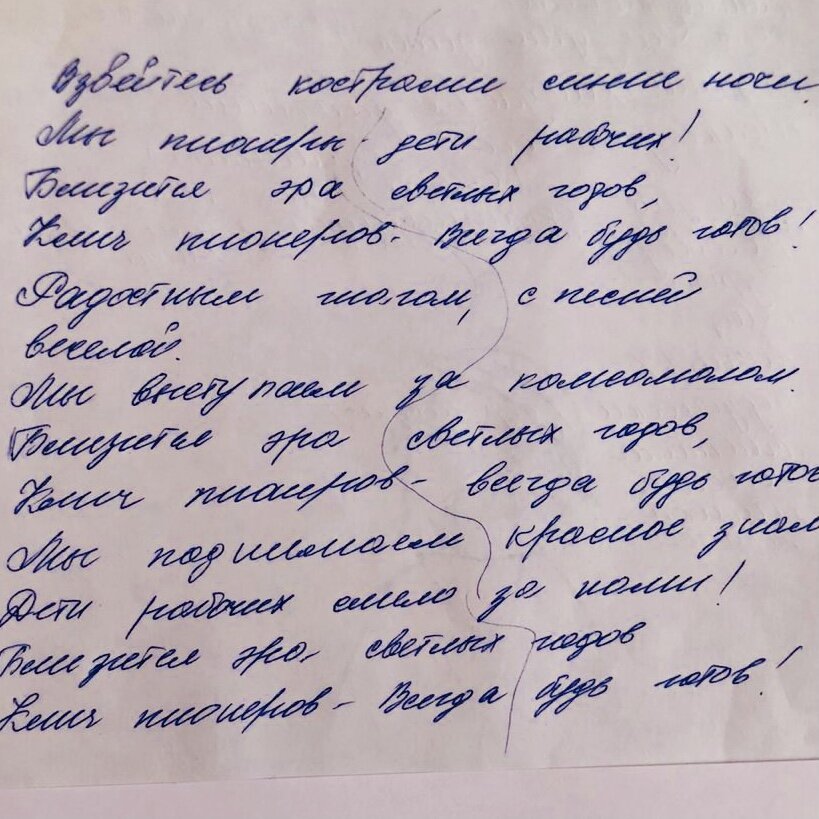 Взвейтесь кострами синие ночи
Мы пионеры дети рабочих!
Близится эра светлых годов,
Клич пионеров - Всегда будь готов!
Радостным шагом, с песней
веселой.
Мы выступаем за комсомолом.
Близится эра светлых годов,
Клич пионеров - всегда будь готов
Мы поднимаем красное знам
Дети рабочих смело за нами!
Близится эра светлых годов
Клич пионеров - Всегда будь готов!